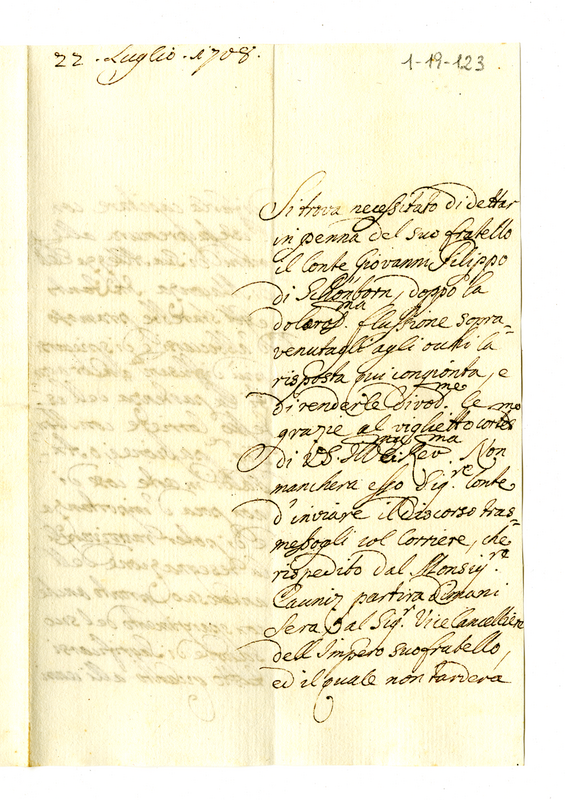 22. Luglio. 1708.
1-19-123
Si trova necessitato di dettar
in penna del suo fratello
il Conte Giovanni Filippo
di Schönborn, doppò la
doloros.ma flussione sopra-
venutagli agli occhi la
risposta qui congionta, e
di renderle divot.me le
grazie al viglietto cortes.mo
di VS. Ill.ma e Rev.ma. Non
mancherà esso Sig.re Conte
d'inviare il discorso tras-
messogli col Corriere, che
rispedito dal Monsig.r
Cauniz partirà dimani
sera al Sig.r Vice Cancellier
dell'Impero suo fratello,
ed il quale non tarderà